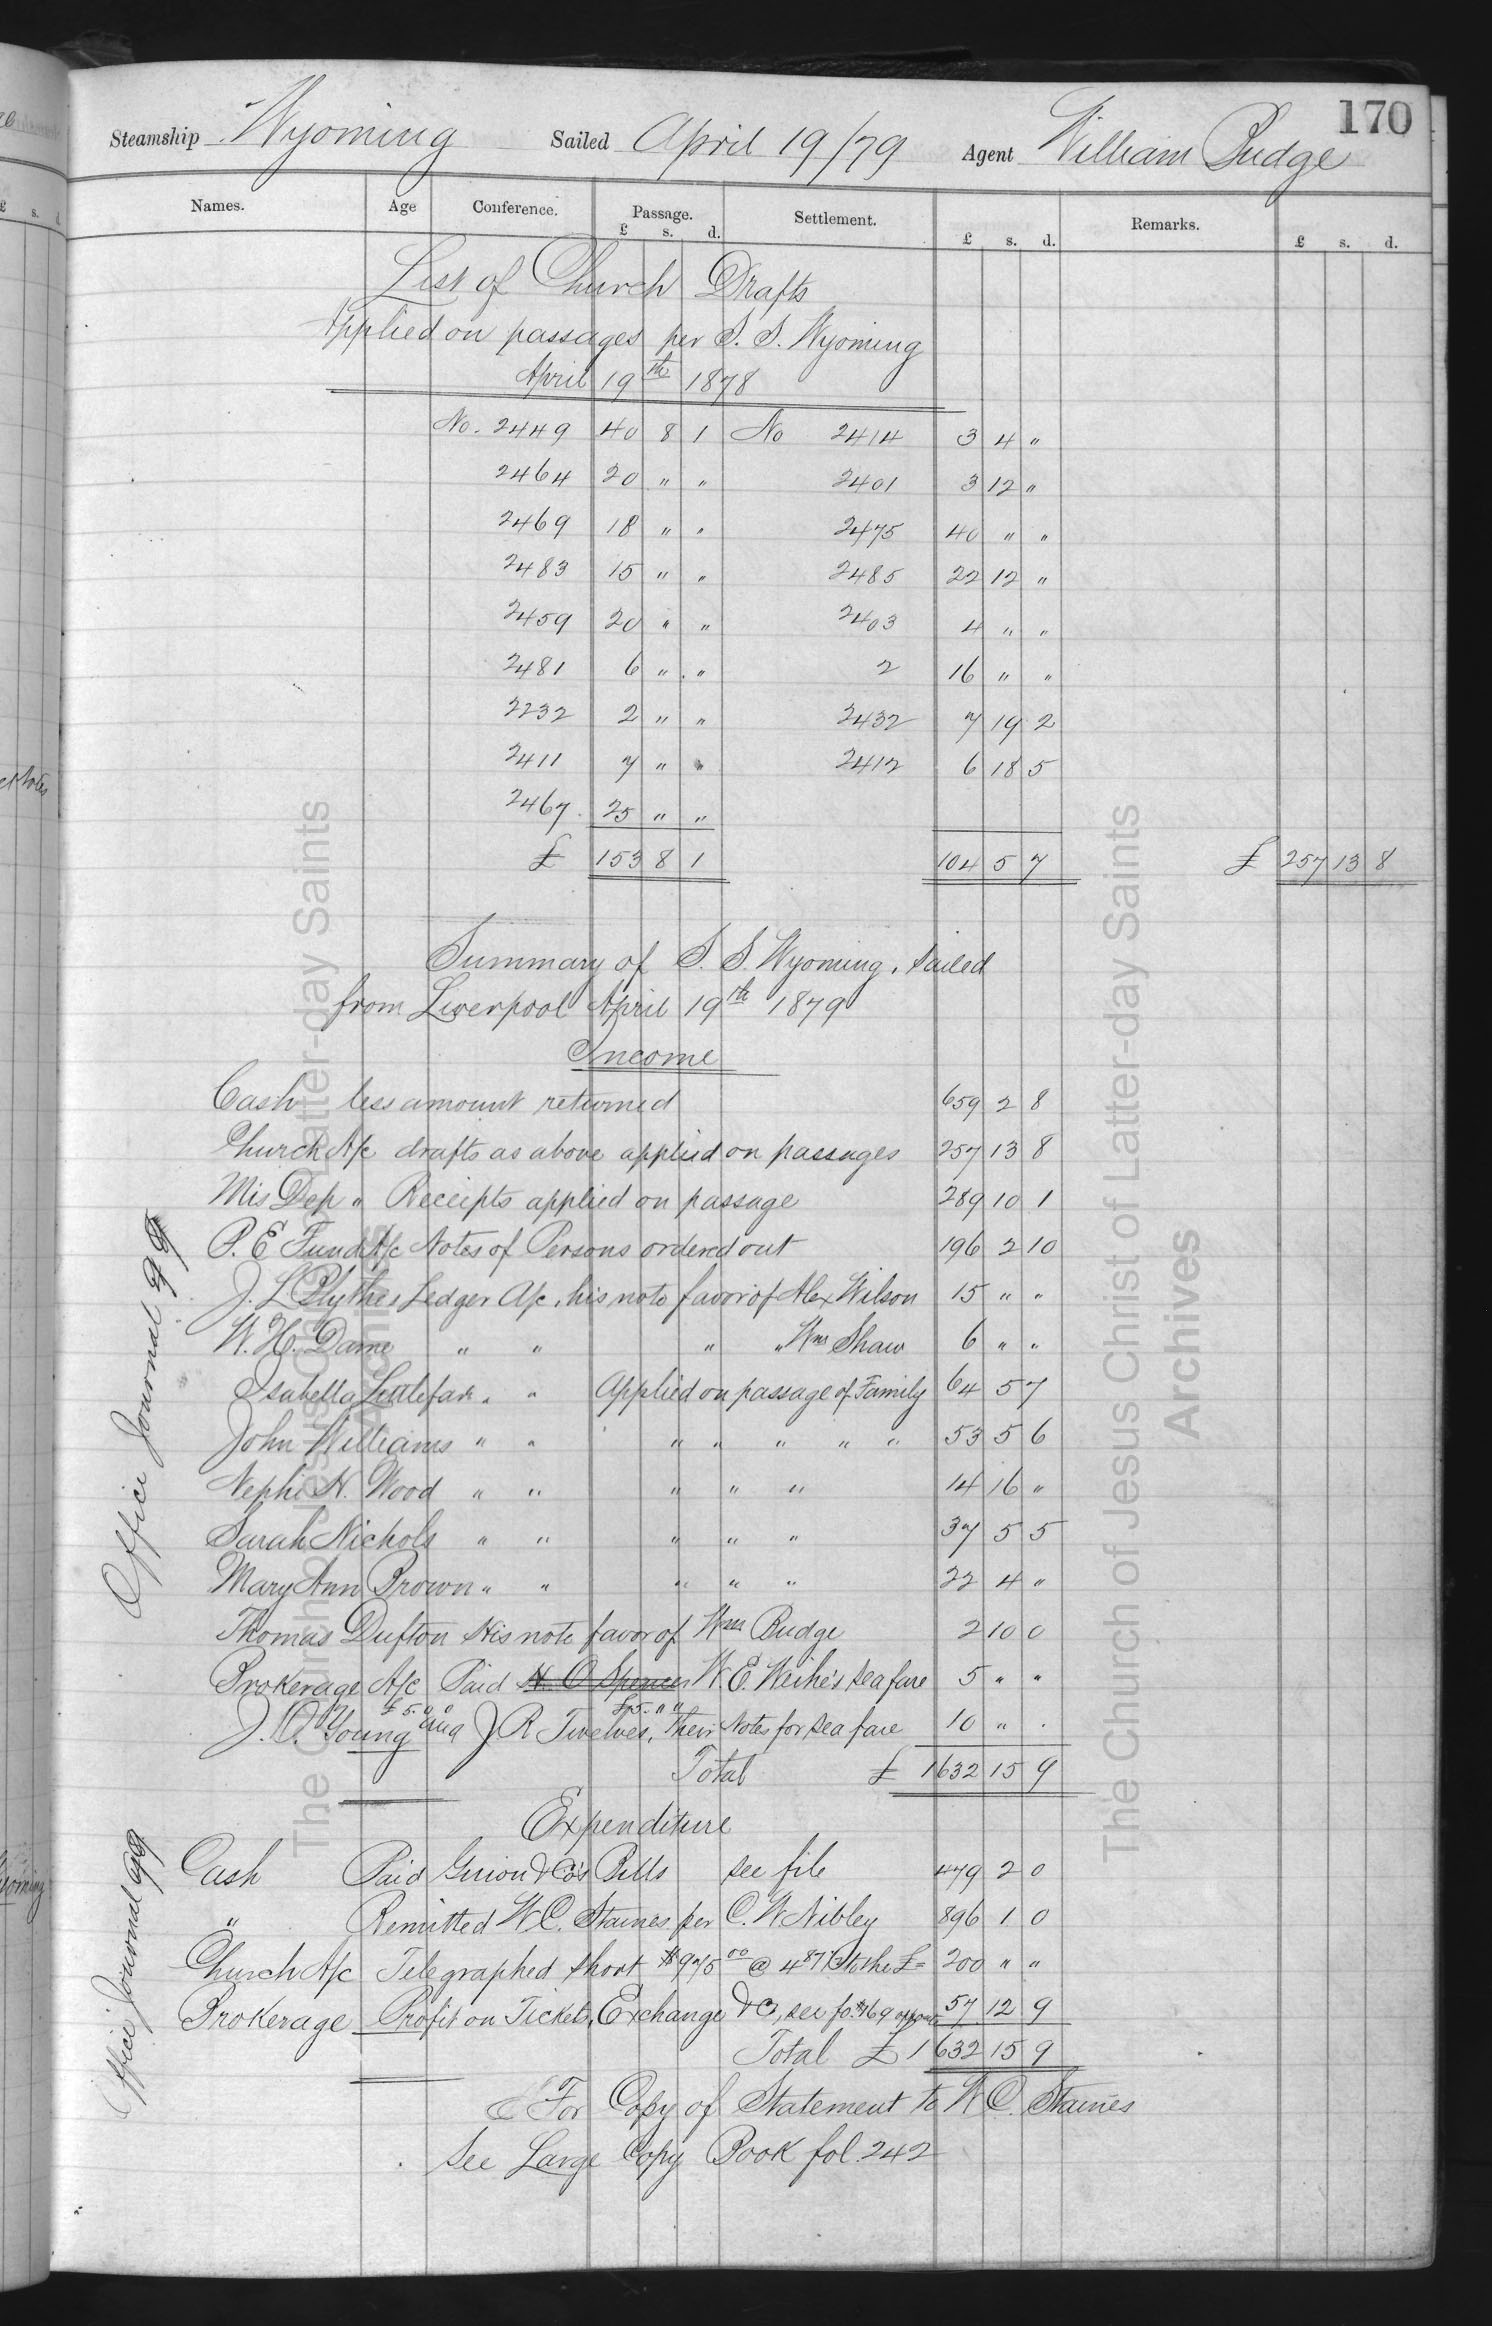 170
Steamship Wyoming Sailed April 19/79 Agent William Budge
Names. Age Conference. Passage. Settlement. Remarks.
£ s. d. £ s. d. £ s. d.
List of Church Drafts
Applied on passages per S. S. Wyoming
April 19th 1878
No. 2449 40 8 1 No 2414 3 4 "
2464 20 " " 2401 3 12 "
2469 18 " " 2475 40 " "
2483 15 " " 2485 22 12 "
2459 20 " " 2403 4 " "
2481 6 " " 2 16 " "
2232 2 " " 2432 7 19 2
2411 7 " " 2412 6 18 5
2467 25 " "
£ 153 8 1 104 5 7 £ 257 13 8
Summary of S. S. Wyoming, Sailed
from Liverpool April 19th 1879
Income
Cash less amount returned 659 2 8
Church A/c drafts as above applied on passages 257 13 8
Mis Dep " Receipts applied on passage 289 10 1
P. E Fund A/c Notes of Persons ordered out 196 2 10
J. L Blythes Ledger A/c, his note favor of Alex Wilson 15 " "
W. H. Dame " " " " Wm Shaw 6 " "
Isabella " " Applied on passage of Family 64 5 7
John Williams " " " " " " " 53 5 6
Nephi N. Wood " " " " " 14 16 "
Sarah Nichols " " " " " 37 5 5
Mary Ann Brown " " " " " 22 4 "
Thomas Dufton His note favor of Wm Budge 2 10 0
Brokerage A/c Paid H. O Spencer W. E. Weihe's sea fare 5 " "
£5. " " £5. " "
J. O. Young and J R Twelves, Their Notes for sea fare 10 " .
Total £ 1632 15 9
Office Journal 99
Expenditure
Cash Paid Guion & Co's Bills see file 479 2 0
" Remitted W C. Staines per C. W Nibley 896 1 0
Church A/c Telegraphed short $975 00 @ 4 87½ to the £ = 200 " "
Brokerage Profit on Tickets, Exchange &c, see fo. 169 57 12 9
Total £ 1632 15 9
Office Journal 99
For Copy of Statement to W C. Staines
See Large Copy Book fol. 242
The Church of Jesus Christ of Latter-day Saints
Archives
The Church of Jesus Christ of Latter-day Saints
Archives